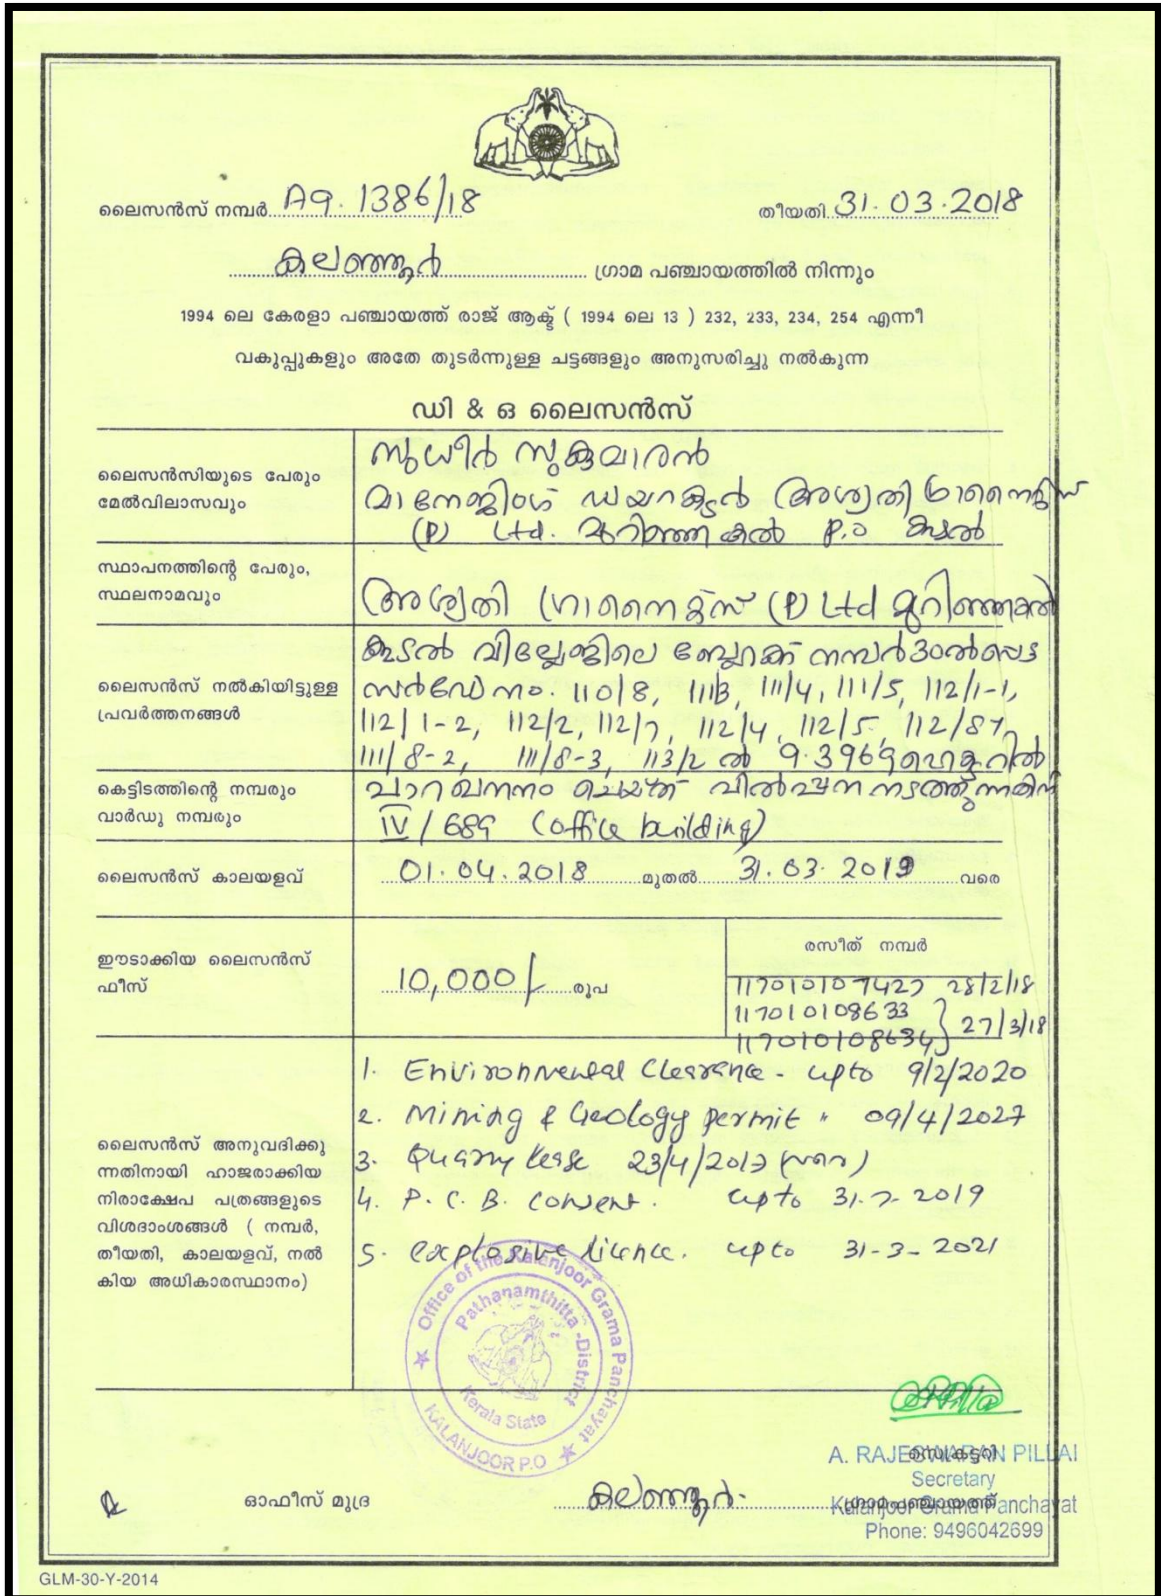 ലൈസൻസ് നമ്പർ A9. 1386/18 തീയതി 31.03.2018
കലഞ്ഞൂർ ഗ്രാമ പഞ്ചായത്തിൽ നിന്നും
1994 ലെ കേരളാ പഞ്ചായത്ത് രാജ് ആക്ട് ( 1994 ലെ 13 ) 232, 233, 234, 254 എന്നീ
വകുപ്പുകളും അതേ തുടർന്നുള്ള ചട്ടങ്ങളും അനുസരിച്ചു നൽകുന്ന
ഡി & ഒ ലൈസൻസ്
ലൈസൻസിയുടെ പേരും
മേൽവിലാസവും
സുധീർ സുകുമാരൻ
മാനേജിംഗ് ഡയറക്ടർ അശ്വതി ഗ്രാനൈറ്റ്സ്
(P) Ltd. മുറിഞ്ഞകൽ P.O കൂടൽ
സ്ഥാപനത്തിന്റെ പേരും,
സ്ഥലനാമവും
അശ്വതി ഗ്രാനൈറ്റ്സ് (P) Ltd മുറിഞ്ഞകൽ
ലൈസൻസ് നൽകിയിട്ടുള്ള
പ്രവർത്തനങ്ങൾ
കൂടൽ വില്ലേജിലെ ബ്ലോക്ക് നമ്പർ 30ൽപ്പെട്ട
സർവ്വേ നം. 110/8, 111/3, 111/4, 111/5, 112/1-1,
112/1-2, 112/2, 112/7, 112/4, 112/5,
111/8-2, 111/8-3, 113/2 ൽ 9.3969 ഹെക്ടറിൽ
കെട്ടിടത്തിന്റെ നമ്പരും
വാർഡു നമ്പരും
പാറ ഖനനം ചെയ്ത് വിൽപ്പന നടത്തുന്നതിന്
IV/689 (office building)
ലൈസൻസ് കാലയളവ്
01.04.2018 മുതൽ 31.03.2019 വരെ
ഈടാക്കിയ ലൈസൻസ്
ഫീസ്
10,000/- രൂപ
രസീത് നമ്പർ
117010107427 28/2/18
117010108633
117010108634 } 27/3/18
ലൈസൻസ് അനുവദിക്കു
ന്നതിനായി ഹാജരാക്കിയ
നിരാക്ഷേപ പത്രങ്ങളുടെ
വിശദാംശങ്ങൾ ( നമ്പർ,
തീയതി, കാലയളവ്, നൽ
കിയ അധികാരസ്ഥാനം)
1. Environmental Clearance - upto 9/2/2020
2. Mining & Geology permit " 09/4/2027
3. Quarry lease
4. P. C. B. Consent. upto 31-7-2019
5. explosive licence. upto 31-3-2021
Office of the Kalanjoor Grama Panchayat
Pathanamthitta -District
Kerala State
KALANJOOR P.O
A. RAJESWARAN PILLAI
സെക്രട്ടറി
Secretary
ഓഫീസ് മുദ്ര
കലഞ്ഞൂർ ഗ്രാമപഞ്ചായത്ത്
Kalanjoor Grama Panchayat
Phone: 9496042699
GLM-30-Y-2014